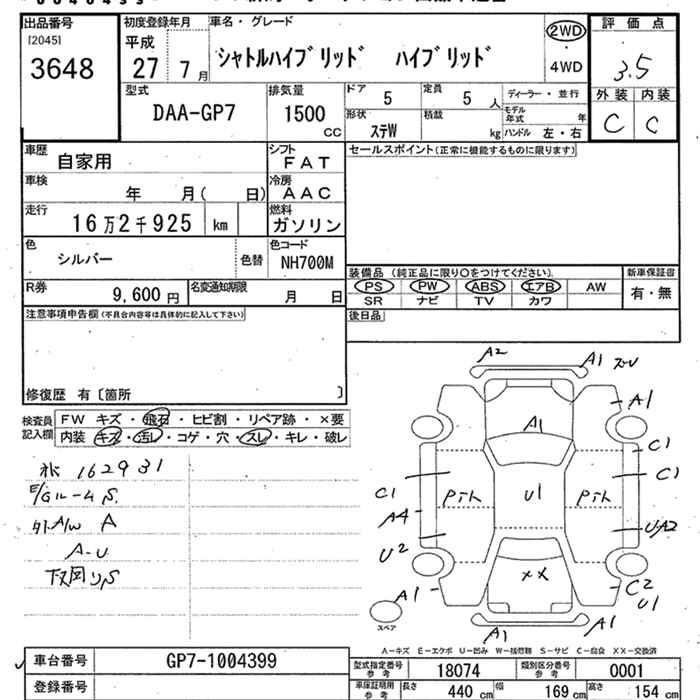 出品番号
[2045]
3648
初度登録年月
平成
27 7月
車名・グレード
シャトルハイブリッド ハイブリッド
2WD
・
4WD
評価点
3.5
外装 内装
C C
型式
DAA-GP7
排気量
1500
CC
ドア
5
定員
5 人
ディーラー・並行
形状
ステW
積載
kg
モデル年式 年
ハンドル 左・右
車歴
自家用
シフト
FAT
車検
年 月( 日)
冷房
AAC
走行
16万2千925 km
燃料
ガソリン
色
シルバー
色替
色コード
NH700M
R券
9,600 円
名変通知期限
月 日
セールスポイント(正常に機能するものに限ります)
装備品 (純正品に限り○をつけてください)
PS PW ABS エアB AW
SR ナビ TV カワ
新車保証書
有・無
後日品
注意事項申告欄(不具合内容等は具体的に記入して下さい)
修復歴 有〔箇所 〕
検査員
記入欄
FW キズ・飛石・ヒビ割・リペア跡・×要
内装 キズ・汚レ・コゲ・穴・スレ・キレ・破レ
162931
外A/W A
A-U
A2
A1
A1
A1
C1
C1
C1
A4
U2
A1
P
P
U1
U-A2
××
C2
U1
A1
A1
スペア
A-キズ E-エクボ U-凹み W-補修跡 S-サビ C-腐食 XX-交換済
車台番号
GP7-1004399
登録番号
型式指定番号
参考
18074
類別区分番号
参考
0001
車庫証明用
参考
長さ
440 cm
幅
169 cm
高さ
154 cm